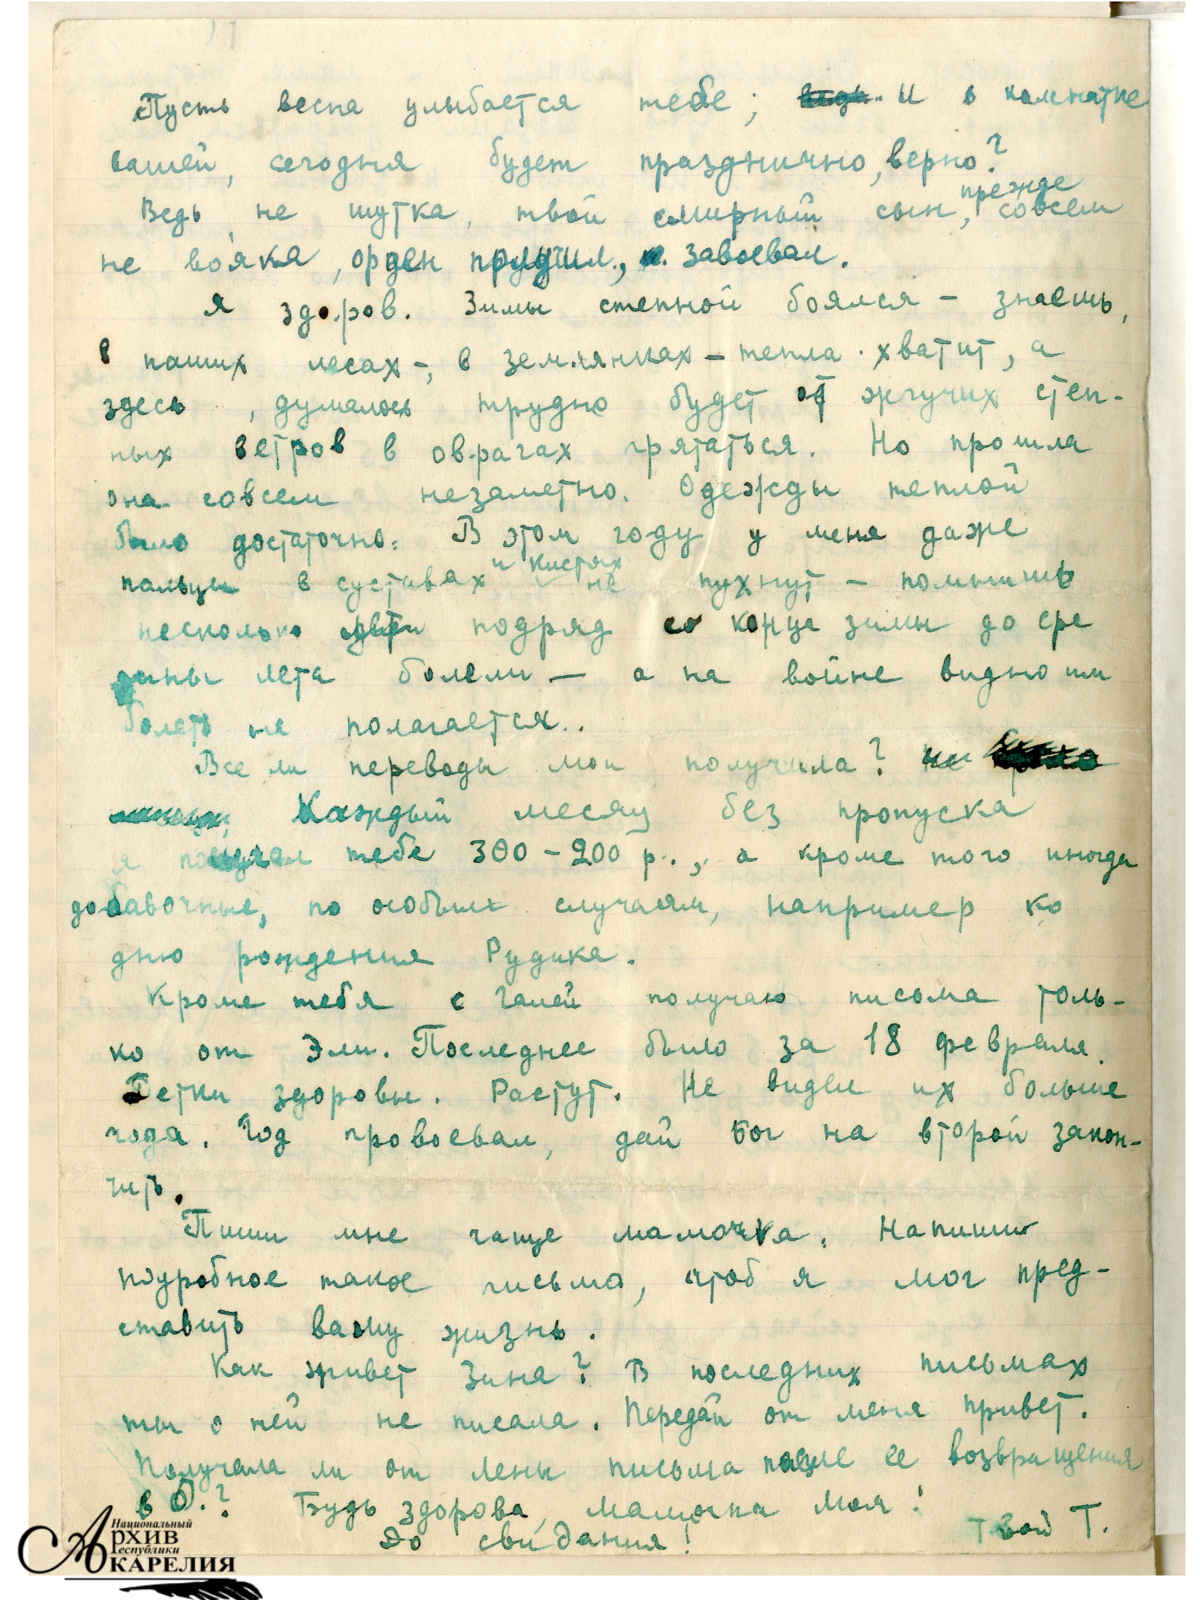 Пусть весна улыбается тебе; И в комнатке
вашей, сегодня будет празднично, верно?
Ведь не шутка, твой смирный сын, прежде совсем
не вояка, орден получил, завоевал.
Я здоров. Зимы степной боялся – знаешь,
в наших лесах –, в землянках – тепла хватит, а
здесь, думалось трудно будет от жгучих степ-
ных ветров в оврагах прятаться. Но прошла
она совсем незаметно. Одежды теплой
было достаточно. В этом году у меня даже
пальцы в суставах и кистях не пухнут – помнишь
несколько лет подряд со конца зимы до сре
дины лета болели – а на войне видно им
болеть не полагается..
Все ли переводы мои получила?
Каждый месяц без пропуска
я посылал тебе 300 – 200 р., а кроме того иногда
добавочные, по особым случаям, например ко
дню рождения Рудика.
Кроме тебя с Галей получаю письма толь-
ко от Эли. Последнее было за 18 февраля.
Детки здоровы. Растут. Не видел их больше
года. Год провоевал, дай Бог на второй закон-
чить.
Пиши мне чаще мамочка. Напиши
подробное такое письмо, чтоб я мог пред-
ставить вашу жизнь.
Как живет Зина? В последних письмах
ты о ней не писала. Передай от меня привет.
Получала ли от Лены письма после ее возвращения
в О.? Будь здорова, мамочка моя!
До свидания! Твой Т.
Национальный
Архив
Республики
Карелия